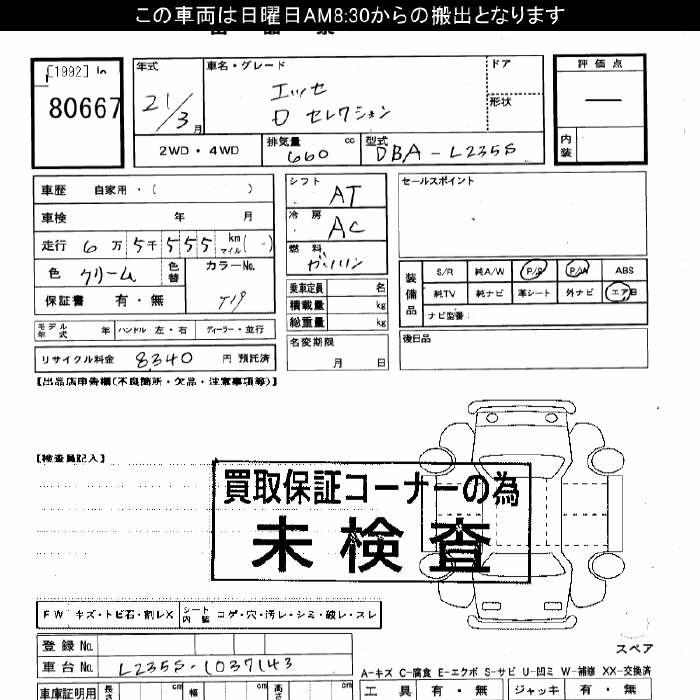 この車両は日曜日AM8:30からの搬出となります
[1992] In
80667
年式
21/3月
車名・グレード
エッセ
D セレクション
ドア
形状
評価点
—
内装
2WD・4WD
排気量 660 cc
型式 DBA-L235S
車歴 自家用・( )
車検 年 月
走行 6万5千555 km マイル (-)
色 クリーム
色替
カラーNo. T19
保証書 有・無
シフト AT
冷房 AC
燃料 ガソリン
セールスポイント
装備品
S/R 純A/W P/S P/W ABS
純TV 純ナビ 革シート 外ナビ エアB
ナビ型番:
乗車定員 名
積載量 kg
総重量 kg
モデル年式 年 ハンドル 左・右 ディーラー・並行
リサイクル料金 8340 円 預託済
名変期限
月 日
後日品
【出品店申告欄(不良箇所・欠品・注意事項等)】
【検査員記入】
買取保証コーナーの為
未検査
FW キズ・トビ石・割レX
シート内装 コゲ・穴・汚レ・シミ・破レ・スレ
スペア
登録No.
車台No. L235S-1037143
A-キズ C-腐食 E-エクボ S-サビ U-凹ミ W-補修 XX-交換済
車庫証明用 長さ cm 幅 cm 高さ cm
工具 有・無 ジャッキ 有・無